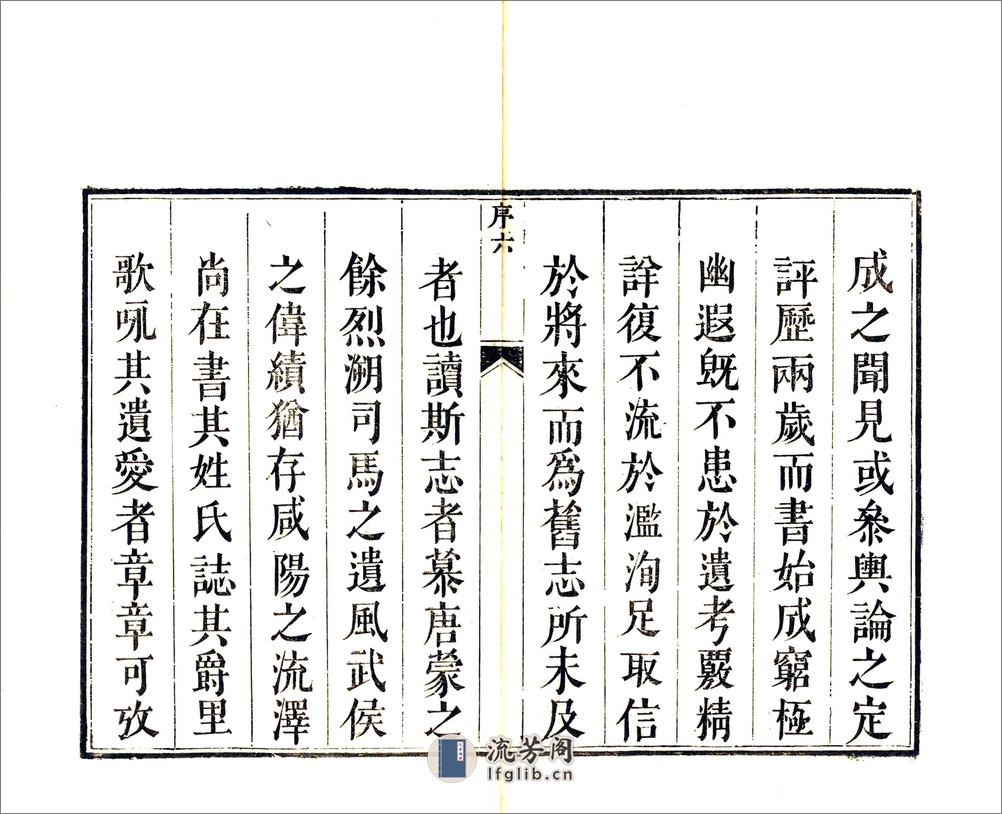 成之聞見或叅輿論之定
評歷兩歲而書始成窮極
幽遐旣不患於遺考覈精
詳復不流於濫洵足取信
於將來而爲舊志所未及
序六
者也讀斯志者慕唐蒙之
餘烈溯司馬之遺風武侯
之偉績猶存咸陽之流澤
尚在書其姓氏誌其爵里
歌吼其遺愛者章章可攷
流芳阁
lfglib.cn